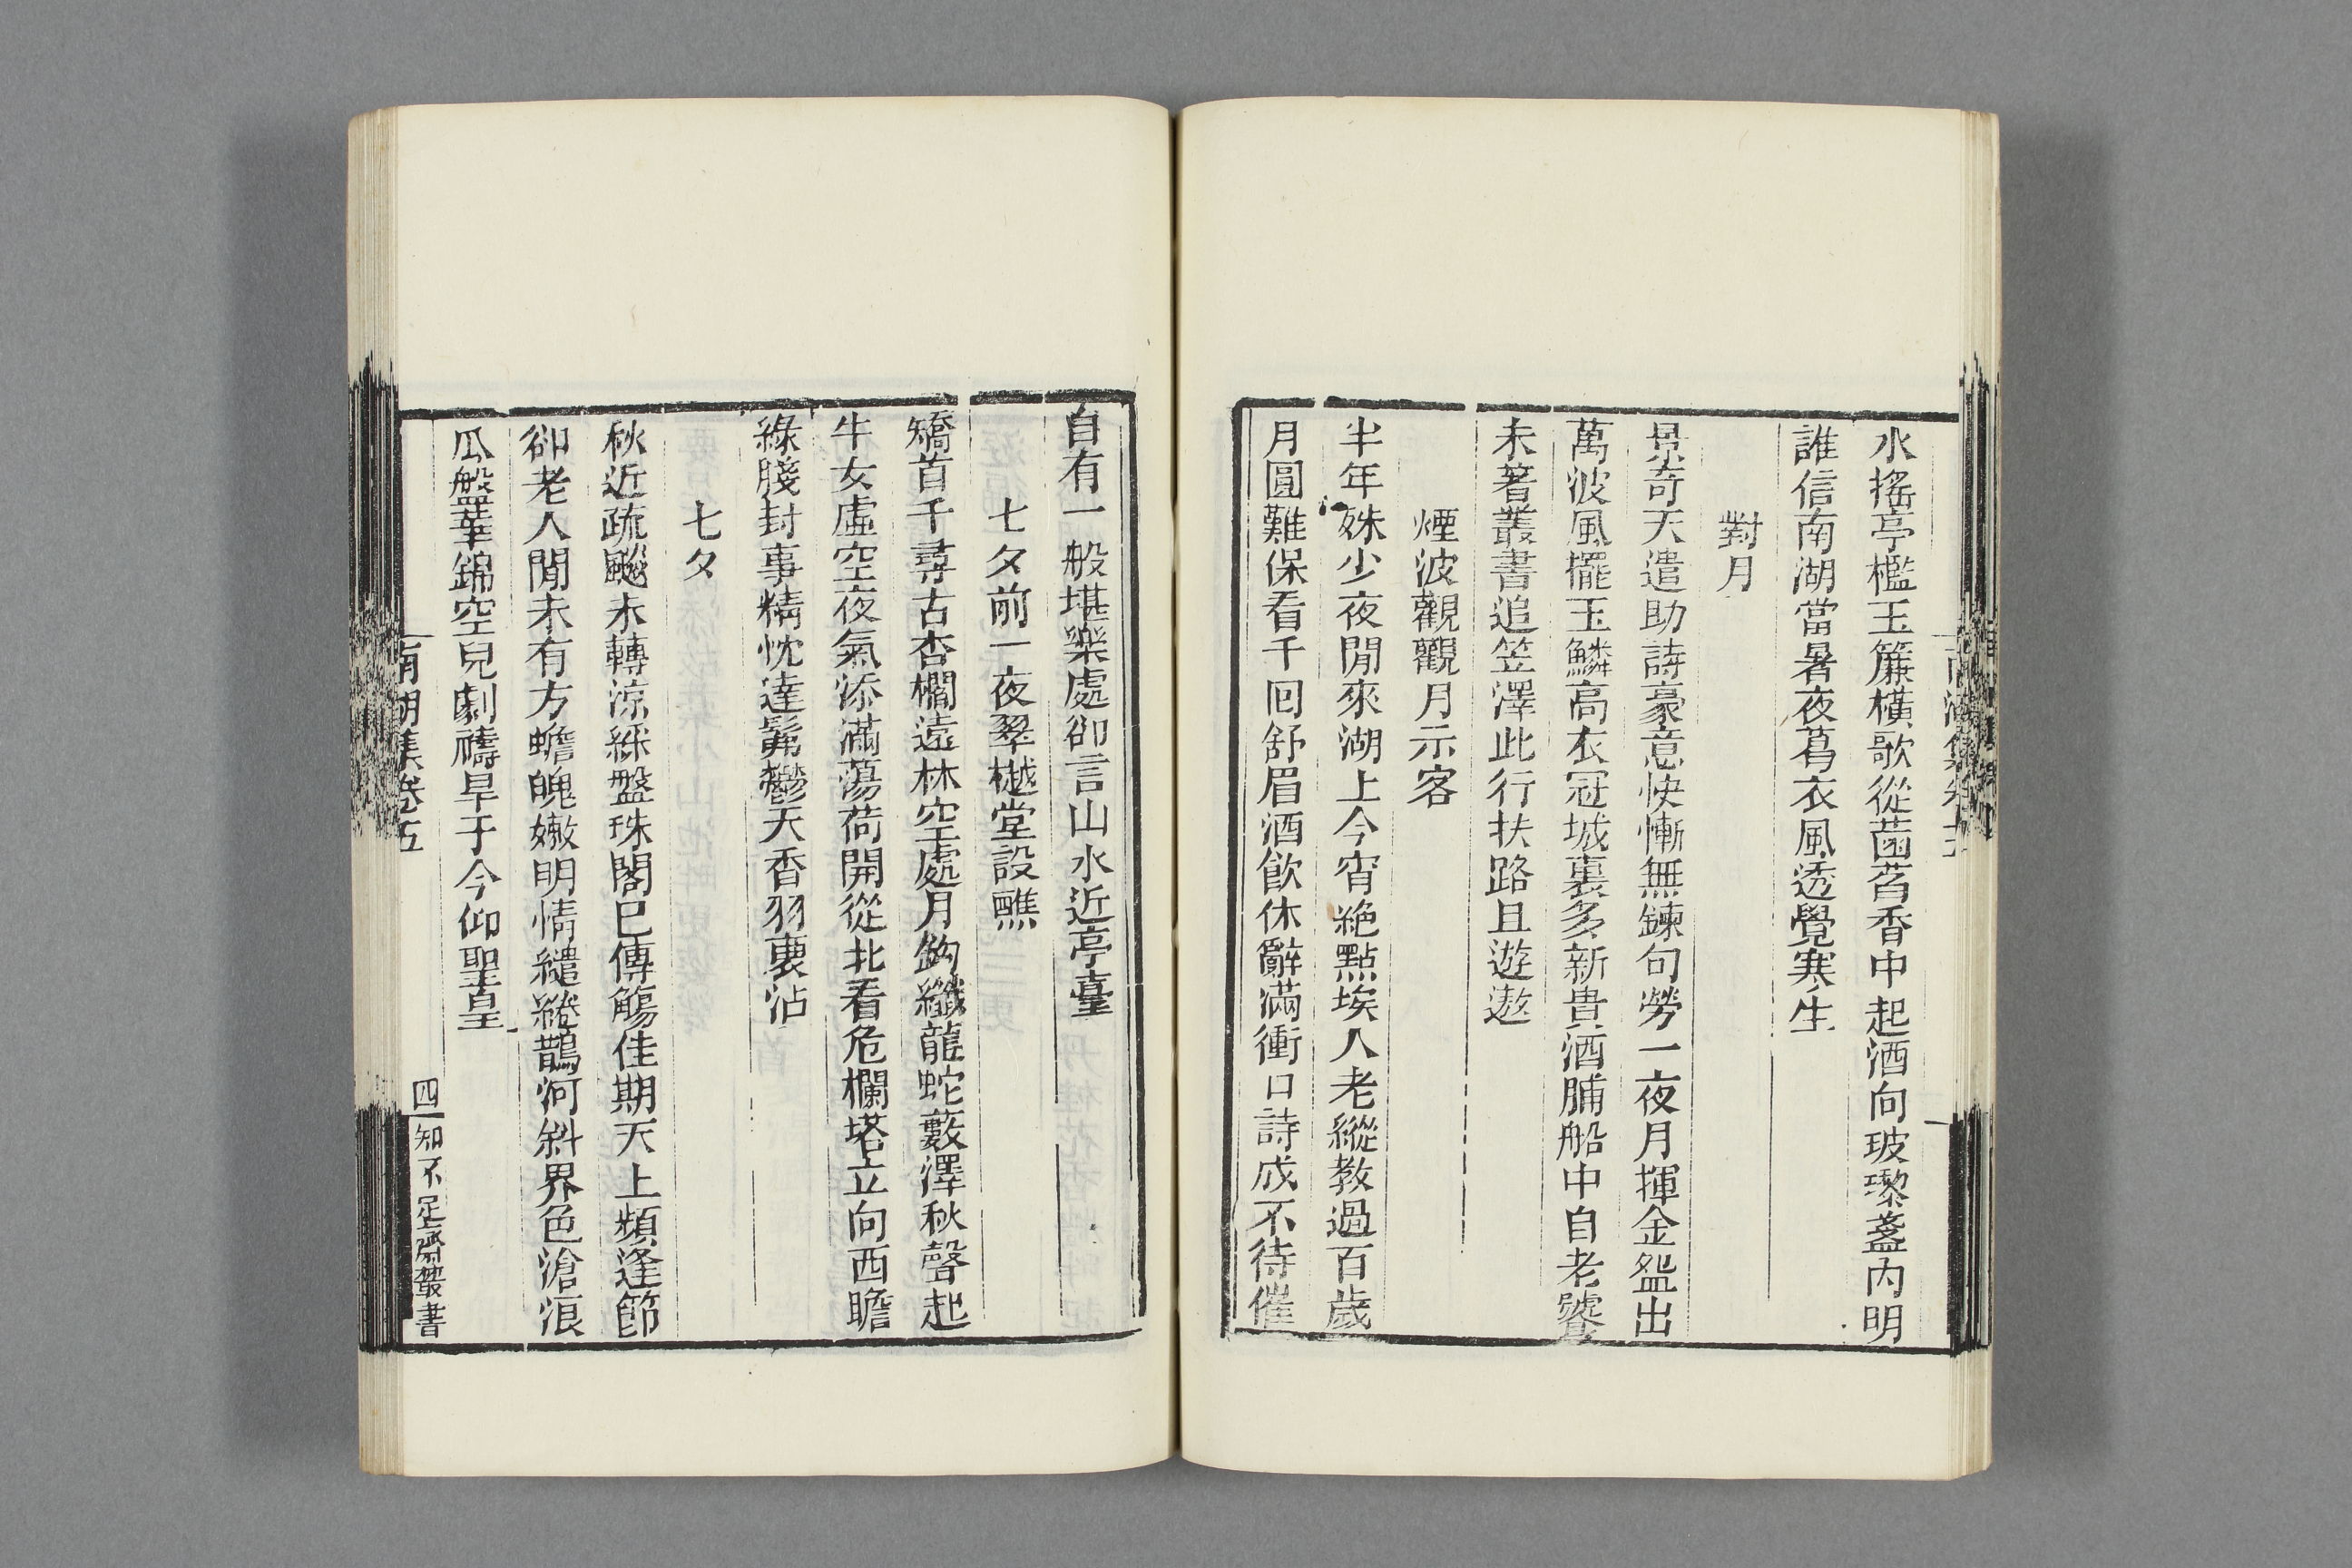 水搖亭檻玉簾橫歌從菡萏香中起酒向玻瓈盞內明
誰信南湖當暑夜葛衣風透覺寒生
對月
景奇天遣助詩豪意快慚無鍊句勞一夜月揮金盌出
萬波風擺玉鱗高衣冠城裏多新貴酒脯船中自老饕
未著叢書追笠澤此行扶路且遊遨
煙波觀觀月示客
半年姝少夜閒來湖上今宵絶點埃人老縱教過百歲
月圓難保看千回舒眉酒飮休辭滿衝口詩成不待催
自有一般堪樂處卻言山水近亭臺
七夕前一夜翠樾堂設醮
矯首千尋古杏櫩遠林空處月鉤纖龍蛇藪澤秋聲起
牛女虛空夜氣添滿蕩荷開從北看危欄塔立向西瞻
綠牋封事精忱達鬅鬱天香羽褭沾
七夕
秋近疏颸未轉涼絲盤珠閣已傳觴佳期天上頻逢節
卻老人閒未有方蟾魄嫩明情繾綣鵲河斜界色滄浪
瓜盤華錦空兒劇禱旱于今仰聖皇
南湖集卷五
四
知不足齋叢書